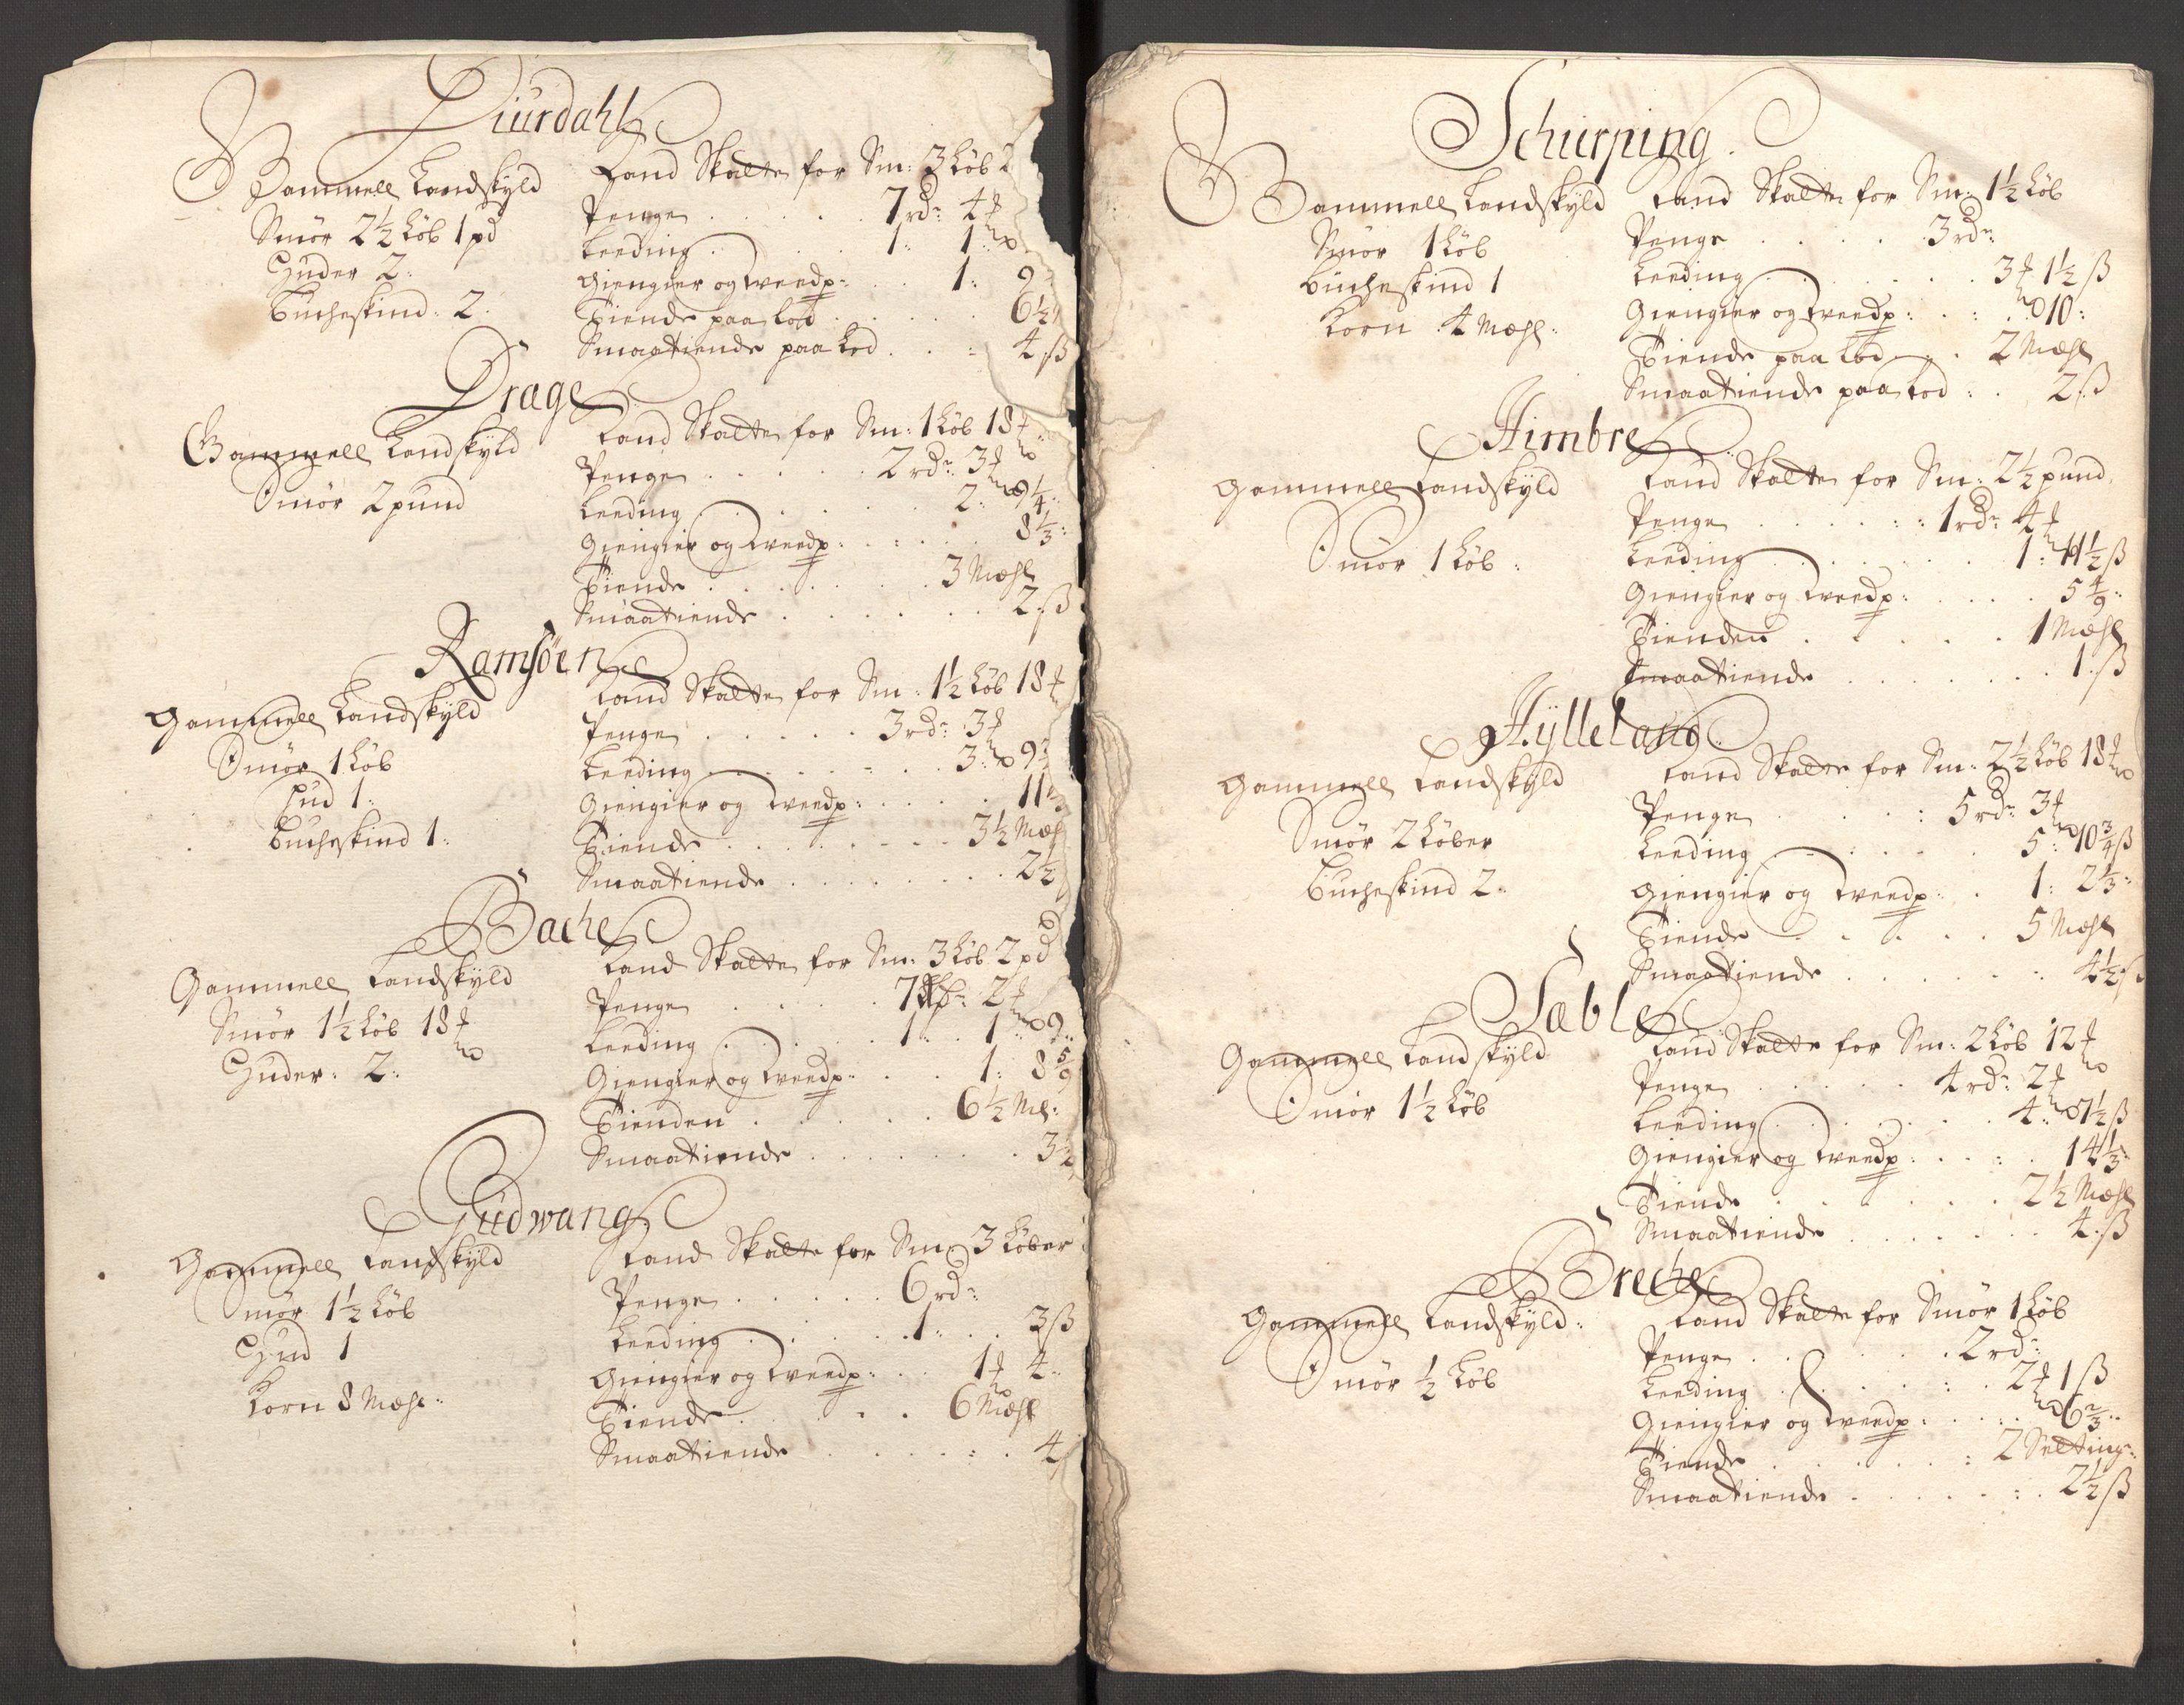 Diurdahl
Gammell Landskyld
Smør 2½ Løb 1 pd
Huder 2:
Bucheskind: 2.
Land Skatte for Sm: 3 Løb 2
Penge . . . . 7 rdr: 4 ₰
Leeding . . . 1: 1:
Giengier og tveedp: . . 1: 9
Tiende paa Lod . . . . 6½
Smaatiende paa Lod . . . 4 ß
Drage
Gammell Landskyld
Smør 2 pund
Land Skatte for Sm: 1 Løb 18 ₰
Penge . . . . . 2 rdr: 3 ₰
Leeding . . . . . 2: 9¼:
Giengier og tveedp: . . . . 8⅓:
Tiende . . . . . 3 Mæhl
Smaatiende . . . . . . 2 ß
Ramsöen
Gammell Landskyld
Smør 1 Løb
Hud 1:
Bucheskind 1:
Land Skatte for Sm: 1½ Løb 18 ₰
Penge . . . . . 3 rdr: 3 ₰
Leeding . . . . . 3: 9
Giengier og tveedp: . . . . 11
Tiende . . . . . . 3½ Mæh
Smaatiende . . . . . . . 2½
Bache
Gammell Landskyld
Smør 1½ Løb 18 ₰
Huder: 2:
Land Skatte for Sm: 3 Løb 2 pd
Penge . . . . 7 2 ₰
Leeding . . . . 1: 1: 9:
Giengier og tveedp: . . . 1: 8 5/9
Tienden . . . . . 6½ Ml:
Smaatiende . . . . . . . 3½
Gudwang
Gammell Landskyld
Smør 1½ Løb
Hud 1
Korn 8 Mæhl:
Land Skatte for Sm: 3 Løber
Penge . . . . . 6 rdr:
Leeding . . . . . 1: . . 3 ß
Giengier og tveedp: . . . 1 ₰ 4:
Tiende . . . . . 6 Mæhl
Smaatiende . . . . . . 4
Schierping.
Gammell Landskyld
Smør 1 Løb
Bucheskind 1
Korn 4 Mæhl:
Land Skatte for Sm: 1½ Løb
Penge . . . . . 3 rdr:
Leeding . . . . . . 3 ₰ 1½ ß
Giengier og tveedp: . . . 10:
Tiende paa Lod . . 2 Mæhl
Smaatiende paa Lod: . 2 ß
Himbre
Gammell Landskyld
Smør 1 Løb:
Land Skatte for Sm: 2½ pund
Penge . . . . . . 1 rdr: 4 ₰
Leeding . . . . . . 1: 11½ ß
Giengier og tveedp: . . . . 5 4/9:
Tienden . . . . . 1 Mæhl
Smaatiende . . . . . . . 1 ß
Hylleland
Gammell Landskyld
Smør 2 Løber
Bucheskind 2:
Land Skatte for Sm: 2½ Løb 18 ₰
Penge . . . . 5 rdr: 3 ₰
Leeding . . . . . . 5: 10¾ ß
Giengier og tveedp: . . 1: 2⅓:
Tiende . . . . . 5 Mæhl
Smaatiende . . . . . . . 4½ ß
Sable
Gammell Landskyld
Smør 1½ Løb
Land Skatte for Sm: 2 Løb 12 ₰
Penge . . . . . 4 rdr: 2 ₰
Leeding . . . . . . 4: 7½ ß
Giengier og tveedp: . . . . 14⅓:
Tiende . . . . . . 2½ Mæhl
Smaatiende . . . . . . . 4 ß
Breche
Gammell Landskyld:
Smør ½ Løb
Land Skatte for Smør 1 Løb
Penge . . . . . . 2 rdr:
Leeding . . . . . . 2 ₰ 1 ß
Giengier og tveedp: . . . . 6⅔:
Tiende . . . . . . 2 Selting:
Smaatiende . . . . . . 2½ ß